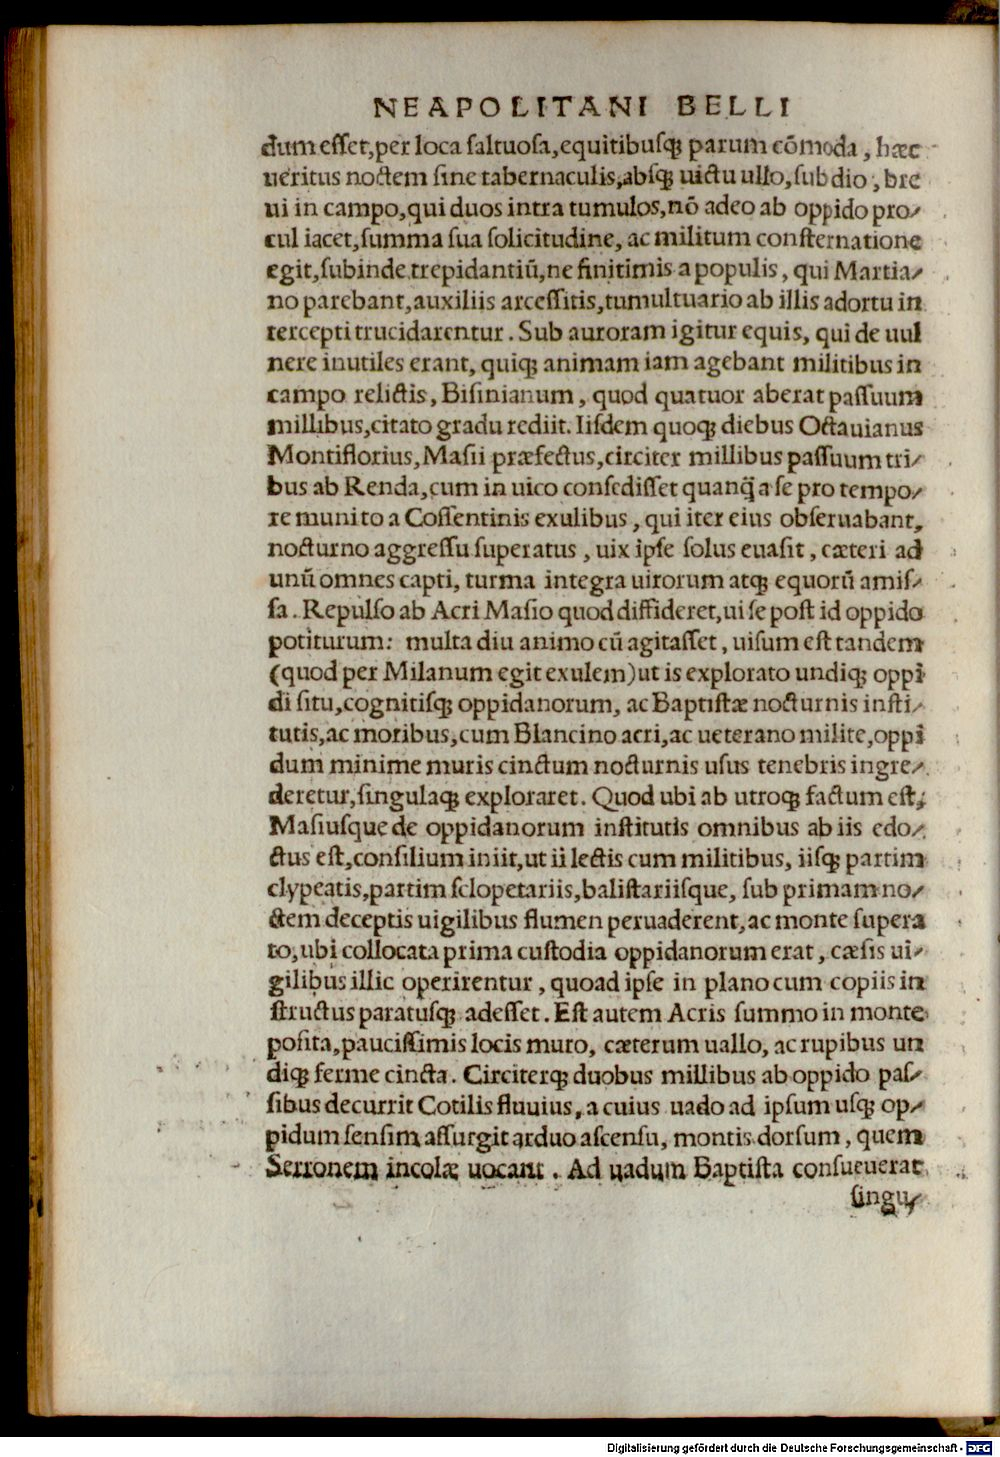 NEAPOLITANI BELLI
dum esset,per loca saltuosa,equitibusq; parum cōmoda, hæc
ueritus noctem sine tabernaculis,absq; uictu ullo,sub dio, bre
ui in campo,qui duos intra tumulos,nō adeo ab oppido pro-
cul iacet,summa sua solicitudine, ac militum consternatione
egit,subinde trepidantiū,ne finitimis a populis, qui Martia-
no parebant,auxiliis arcessitis,tumultuario ab illis adortu in
tercepti trucidarentur. Sub auroram igitur equis, qui de uul
nere inutiles erant, quiq; animam iam agebant militibus in
campo relictis, Bisinianum, quod quatuor aberat passuum
millibus,citato gradu rediit. Iisdem quoq; diebus Octauianus
Montiflorius,Masii præfectus,circiter millibus passuum tri-
bus ab Renda,cum in uico consedisset quanq̃ a se pro tempo-
re munito a Cossentinis exulibus, qui iter eius obseruabant,
nocturno aggressu superatus, uix ipse solus euasit, cæteri ad
unū omnes capti, turma integra uirorum atq; equorū amis-
sa. Repulso ab Acri Masio quod diffideret,ui se post id oppido
potiturum: multa diu animo cū agitasset, uisum est tandem
(quod per Milanum egit exulem)ut is explorato undiq; oppi
di situ,cognitisq; oppidanorum, ac Baptistæ nocturnis insti-
tutis,ac moribus,cum Blancino acri,ac ueterano milite,oppi
dum minime muris cinctum nocturnis usus tenebris ingre-
deretur,singulaq; exploraret. Quod ubi ab utroq; factum est,
Masiusque de oppidanorum institutis omnibus ab iis edo-
ctus est,consilium iniit,ut ii lectis cum militibus, iisq; partim
clypeatis,partim sclopetariis,balistariisque, sub primam no-
ctem deceptis uigilibus flumen peruaderent,ac monte supera
to,ubi collocata prima custodia oppidanorum erat, cæsis ui-
gilibus illic operirentur, quoad ipse in plano cum copiis in
structus paratusq; adesset. Est autem Acris summo in monte
posita,paucissimis locis muro, cæterum uallo, ac rupibus un
diq; ferme cincta. Circiterq; duobus millibus ab oppido pas-
sibus decurrit Cotilis fluuius, a cuius uado ad ipsum usq; op-
pidum sensim assurgit arduo ascensu, montis dorsum, quem
Serronem incolæ uocant. Ad uadum Baptista consueuerat
singu-
Digitalisierung gefördert durch die Deutsche Forschungsgemeinschaft - DFG